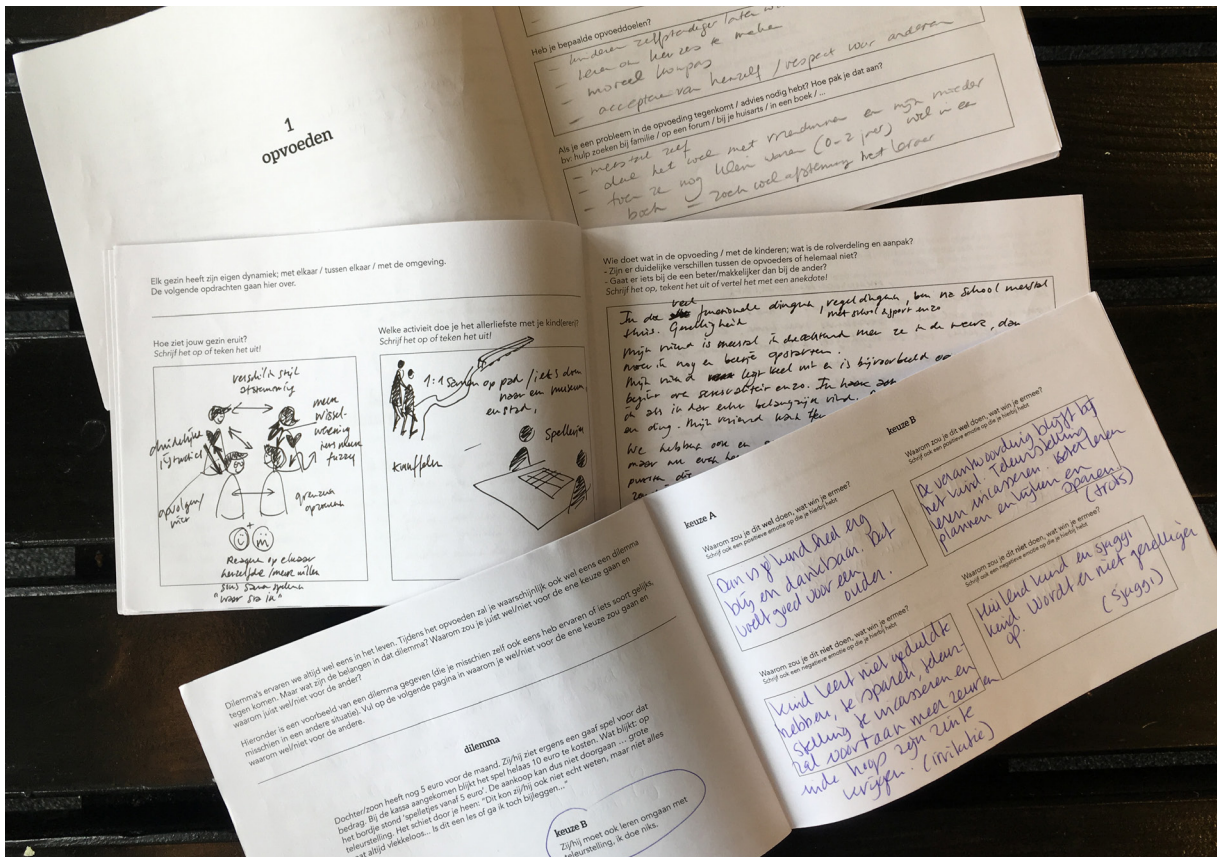 1
opvoeden
Heb je bepaalde opvoeddoelen?
- kinderen zelfstandiger laten
- leren om keuzes te maken
- moreel kompas
- accepteren van henzelf / respect voor anderen
Als je een probleem in de opvoeding tegenkomt / advies nodig hebt? Hoe pak je dat aan?
bv: hulp zoeken bij familie / op een forum / bij je huisarts / in een boek / ...
- meestal zelf
- deel het wel met vriendinnen en mijn moeder
- toen ze nog klein waren (0-2 jaar) wel in een
boek
Elk gezin heeft zijn eigen dynamiek; met elkaar / tussen elkaar / met de omgeving.
De volgende opdrachten gaan hier over.
Hoe ziet jouw gezin eruit?
Schrijf het op of teken het uit!
verschil in stijl
afstemming
meer
wissel-
werking
fuzzy
duidelijke
opvolgen/
grenzen
opzoeken
+
Reageren op elkaar
hetzelfde / meer willen
"
Welke activiteit doe je het allerliefste met je kind(eren)?
Schrijf het op of teken het uit!
1:1 samen op pad / iets doen
naar een museum,
een stad,
Spelletjes
knuffelen
Wie doet wat in de opvoeding / met de kinderen; wat is de rolverdeling en aanpak?
- Zijn er duidelijke verschillen tussen de opvoeders of helemaal niet?
- Gaat er iets bij de een beter/makkelijker dan bij de ander?
Schrijf het op, tekent het uit of vertel het met een anekdote!
veel
In de functionele dingen, regel dingen, ben na school meestal
thuis. Gezelligheid
Mijn vriend is meestal in de ochtend met ze in de weer, dan
moet ik nog een beetje opstarten.
Mijn vriend legt heel veel uit en is bijvoorbeeld
We hebben ook een
maar nu even
Dilemma's ervaren we altijd wel eens in het leven. Tijdens het opvoeden zal je waarschijnlijk ook wel eens een dilemma
tegen komen. Maar wat zijn de belangen in dat dilemma? Waarom zou je juist wel/niet voor de ene keuze gaan en
waarom juist wel/niet voor de ander?
Hieronder is een voorbeeld van een dilemma gegeven (die je misschien zelf ook eens heb ervaren of iets soort gelijks,
misschien in een andere situatie). Vul op de volgende pagina in waarom je wel/niet voor de ene keuze zou gaan en
waarom wel/niet voor de andere.
dilemma
Dochter/zoon heeft nog 5 euro voor de maand. Zij/hij ziet ergens een gaaf spel voor dat
bedrag. Bij de kassa aangekomen blijkt het spel helaas 10 euro te kosten. Wat blijkt: op
het bordje stond 'spelletjes vanaf 5 euro'. De aankoop kan dus niet doorgaan ... grote
teleurstelling. Het schiet door je heen: "Dit kon zij/hij ook niet echt weten, maar niet alles
gaat altijd vlekkeloos... Is dit een les of ga ik toch bijleggen..."
keuze B
Zij/hij moet ook leren omgaan met
teleurstelling, ik doe niks.
keuze A
Waarom zou je dit wel doen, wat win je ermee?
Schrijf ook een positieve emotie op die je hierbij hebt
Dan is je kind heel erg
blij en dankbaar. Dat
voelt goed voor een
ouder.
Waarom zou je dit niet doen, wat win je ermee?
Schrijf ook een negatieve emotie op die je hierbij hebt
Kind leert niet geduld te
hebben, te sparen, teleur-
stelling te incasseren en
zal voortaan meer zeuren
in de hoop zijn zin te
krijgen. (irritatie)
keuze B
Waarom zou je dit wel doen, wat win je ermee?
Schrijf ook een positieve emotie op die je hierbij hebt
De verantwoording blijft bij
het kind. Teleurstelling
leren incasseren. Beter leren
plannen en kijken en
sparen
(trots)
Waarom zou je dit niet doen, wat win je ermee?
Schrijf ook een negatieve emotie op die je hierbij hebt
Huilend kind en sjaggi
kind wordt er niet gezelliger
op. (sjaggi)